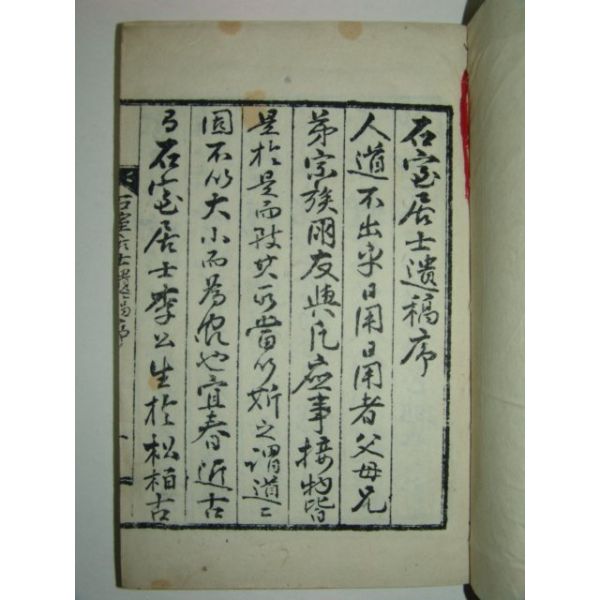 石室居士遺稿序
人道不出乎日用日用者父母兄
弟宗族朋友與凡應事接物皆
是於是而致其所當行斯之謂道〻
固不以大小而為也宜春近古
石室居士李公生於松柏古
石室居士遺稿序 一